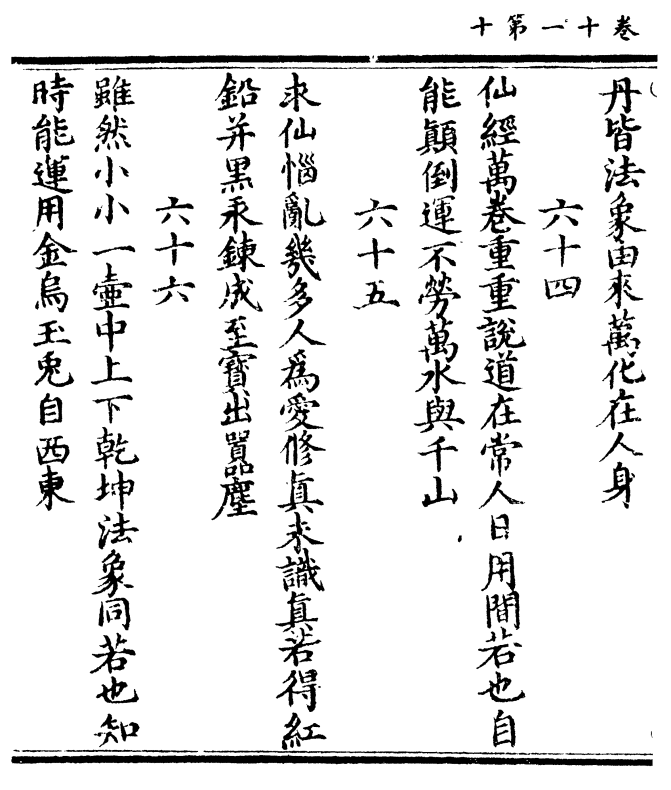 卷十一第十
丹皆法象由來萬化在人身
六十四
仙經萬卷重重說道在常人日用間若也自
能顛倒運不勞萬水與千山
六十五
求仙惱亂幾多人爲愛修真未識真若得紅
鉛并黑汞鍊成至寶出囂塵
六十六
雖然小小一壺中上下乾坤法象同若也知
時能運用金烏玉兎自西東